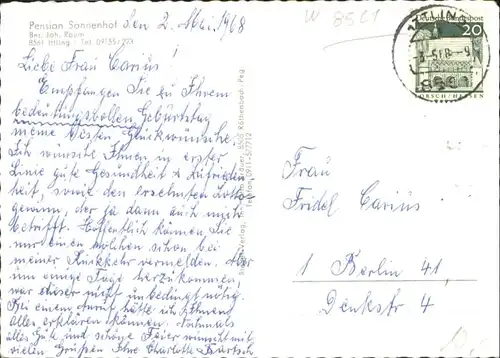 Pension Sonnenhof
Bes. Joh. Raum
8561 Ittling · Tel. 09155/223
den 2. Mai 1968
Liebe Frau Carius!
Empfangen Sie zu Ihrem
bedeutungsvollen Geburtstag
meine besten Glückwünsche.
Ich wünsche Ihnen in erster
Linie gute Gesundheit u. Zufrieden
heit, sowie den ersehnten Lotto-
gewinn, der ja dann auch mich
betrifft. Hoffentlich können Sie
mir einen solchen schon bei
meiner Rückkehr vermelden. Aber
um einige Tage herzukommen,
war dieser nicht unbedingt nötig.
Bei einem Anruf hätte ich Ihnen
alles erklären können. Nochmals
alles Gute und schöne Feier wünscht mit
vielen Grüßen Ihre Charlotte
Verlag, 8501 Röthenbach/Peg
W 8561
ITTLING
-3.5.68-9
8561
Deutsche Bundespost
20
LORSCH/HESSEN
Frau
Fridel Carius
1 Berlin 41,
Denkstr 4